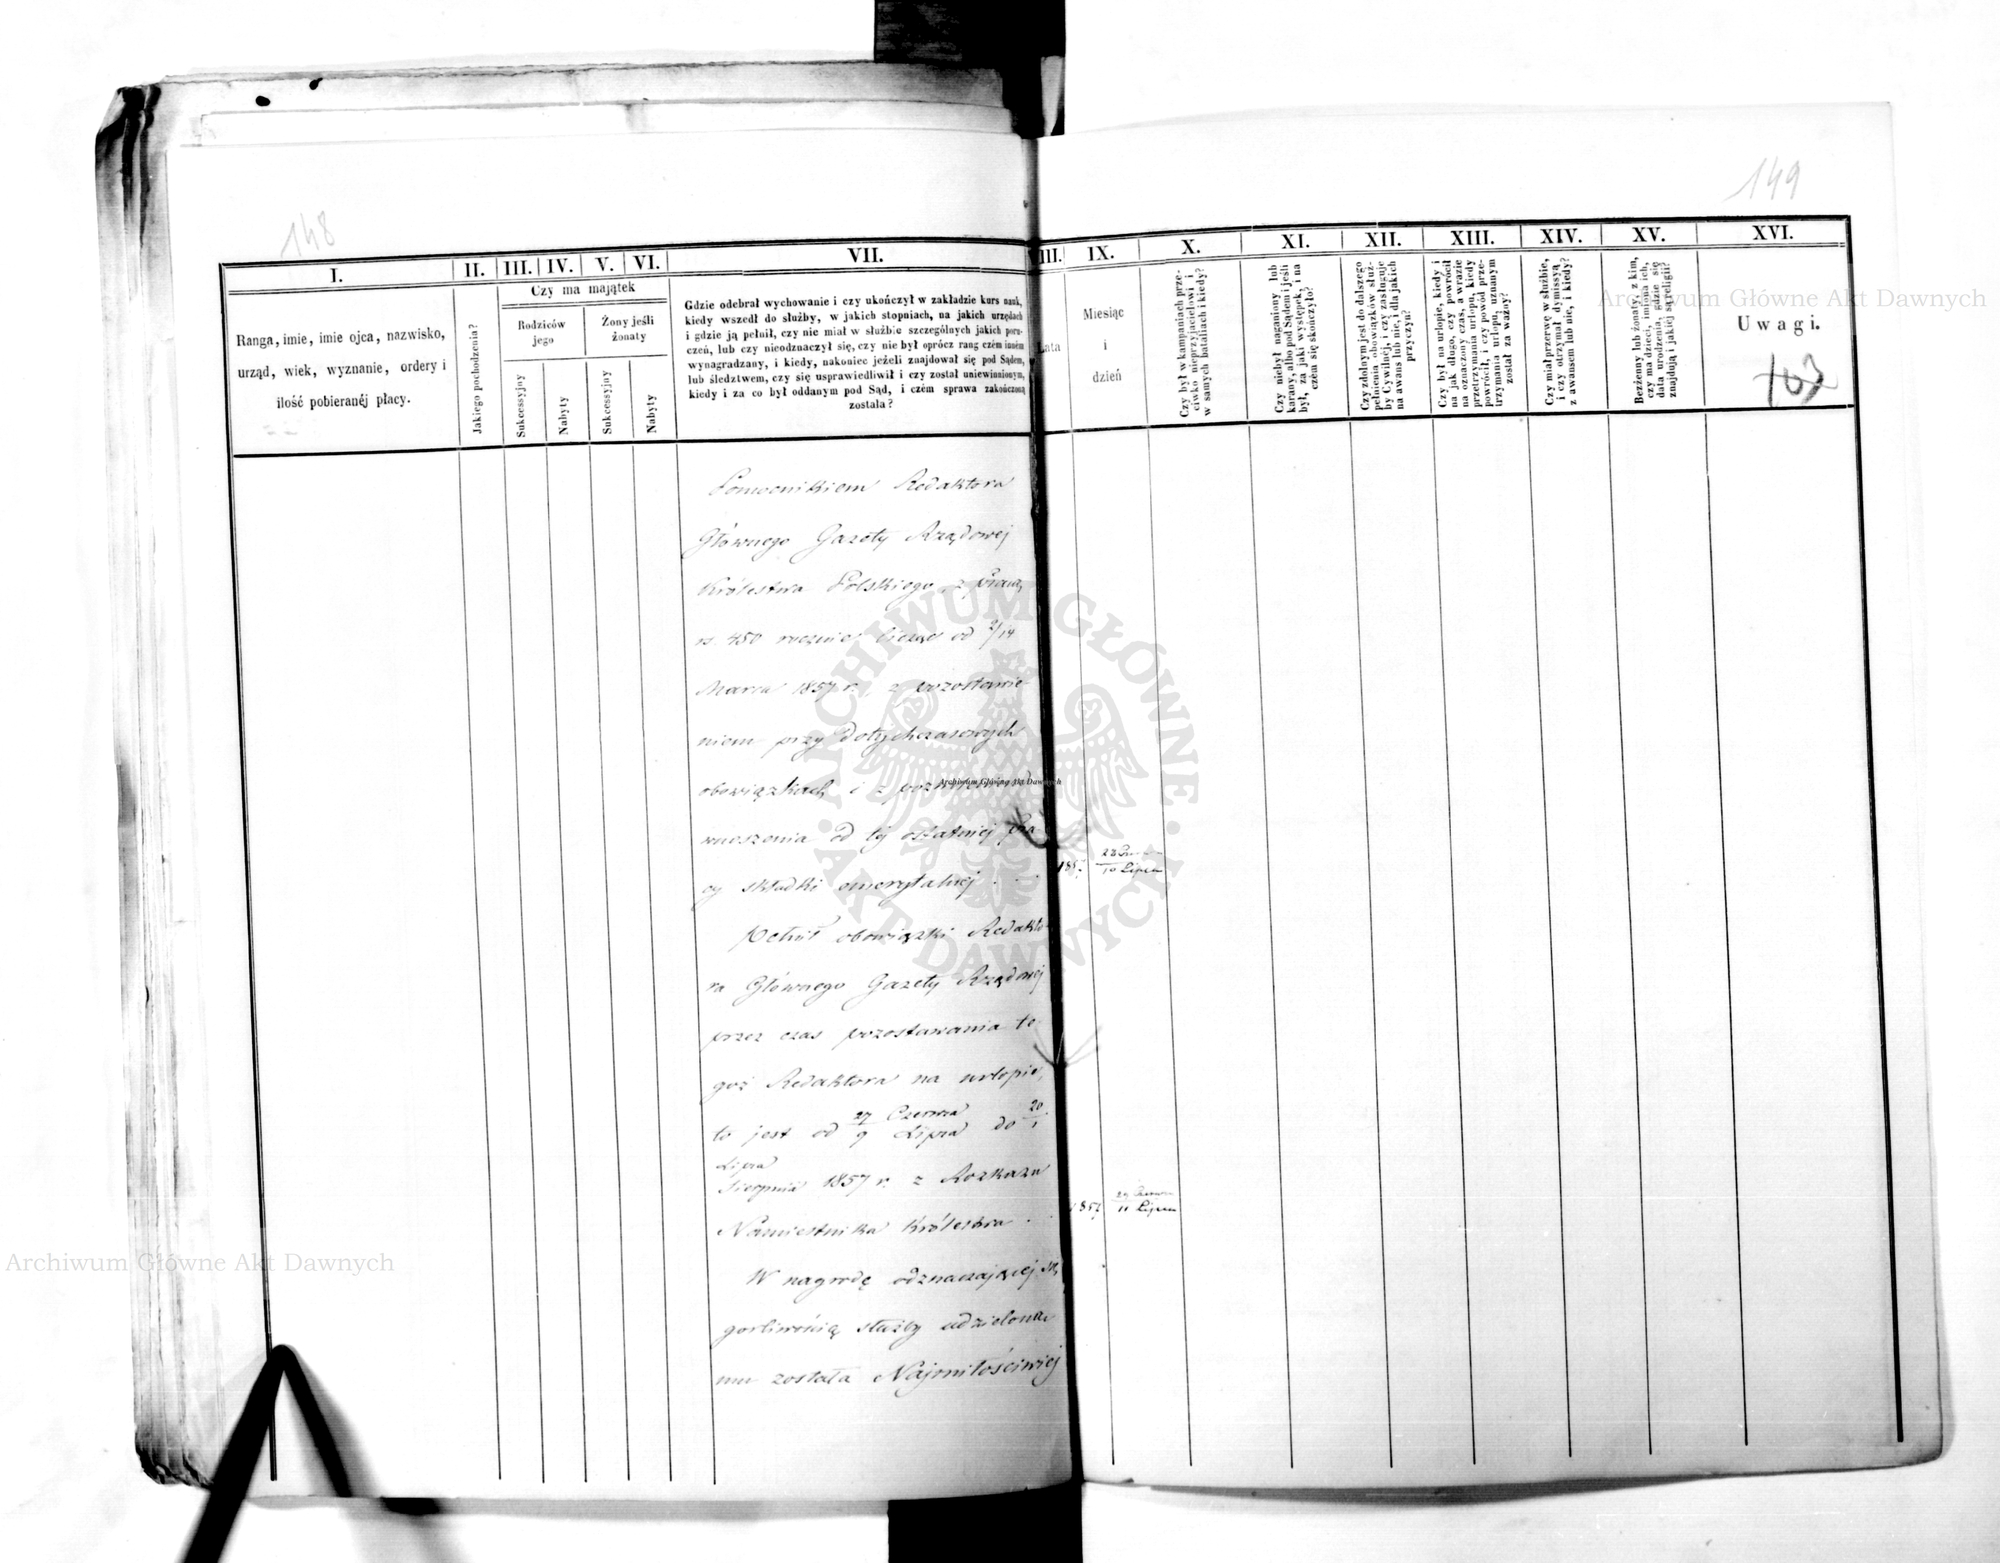 148
149
I.
II.
III.
IV.
V.
VI.
VII.
III.
IX.
X.
XI.
XII.
XIII.
XIV.
XV.
XVI.
Ranga, imie, imie ojca, nazwisko,
urząd, wiek, wyznanie, ordery i
ilość pobieranéj płacy.
Jakiego pochodzenia?
Czy ma majątek
Rodziców
jego
Żony jeśli
żonaty
Sukcessyjny
Nabyty
Sukcessyjny
Nabyty
Gdzie odebrał wychowanie i czy ukończył w zakładzie kurs nauk,
kiedy wszedł do służby, w jakich stopniach, na jakich urzędach
i gdzie ją pełnił, czy nie miał w służbie szczególnych jakich poru-
czeń, lub czy nieodznaczył się, czy nie był oprócz rang czém inném
wynagradzany, i kiedy, nakoniec jeżeli znajdował się pod Sądem,
lub śledztwem, czy się usprawiedliwił i czy został uniewinnionym,
kiedy i za co był oddanym pod Sąd, i czém sprawa zakończoną
została?
ata
Miesiąc
i
dzień
Czy był w kampaniach prze-
ciwko nieprzyjacielowi i
w samych bataliach i kiedy?
Czy niebył naganiony lub
karany, albo pod Sądem i jeśli
był, za jaki występek, i na
czém się skończyło?
Czy zdolnym jest do dalszego
pełnienia obowiązków służ-
by Cywilnéj, i czy zasługuje
na awans lub nie, i dla jakich
przyczyn?
Czy był na urlopie, kiedy i
na jak długo, czy powrócił
na oznaczony czas, a w razie
przetrzymania urlopu, kiedy
powrócił, i czy powód prze-
trzymania urlopu, uznanym
został za ważny?
Czy miał przerwę w służbie,
i czy otrzymał dymissyą
z awansem lub nie, i kiedy?
Bezżenny lub żonaty, z kim,
czy ma dzieci, imiona ich,
data urodzenia, gdzie się
znajdują i jakiej są religii?
Uwagi.
103
Pomocnikiem Redaktora
Głównego Gazety Rządowej
Królestwa Polskiego, z płacą
rs. 450 rocznie licząc od 2/14
Marca 1857 r., z pozostawie-
niem przy dotychczasowych
obowiązkach i z
wnoszenia od tej ostatniej pła-
cy składki emerytalnej . .
185 28 / 10 Lipca
Pełnił obowiązki Redakto-
ra Głównego Gazety Rządowej
przez czas pozostawania te-
goż Redaktora na urlopie,
to jest od 27 Czerwca / 9 Lipca do 20 / 1
Lipca / Sierpnia 1857 r. z Rozkazu
Namiestnika Królestwa .
1857 29 Czerwca / 11 Lipca
W nagrodę odznaczającej się
gorliwością służby udzieloną
mu została Najmiłościwiej
ARCHIWUM GŁÓWNE AKT DAWNYCH
Archiwum Główne Akt Dawnych
Archiwum Główne Akt Dawnych
Archiwum Główne Akt Dawnych